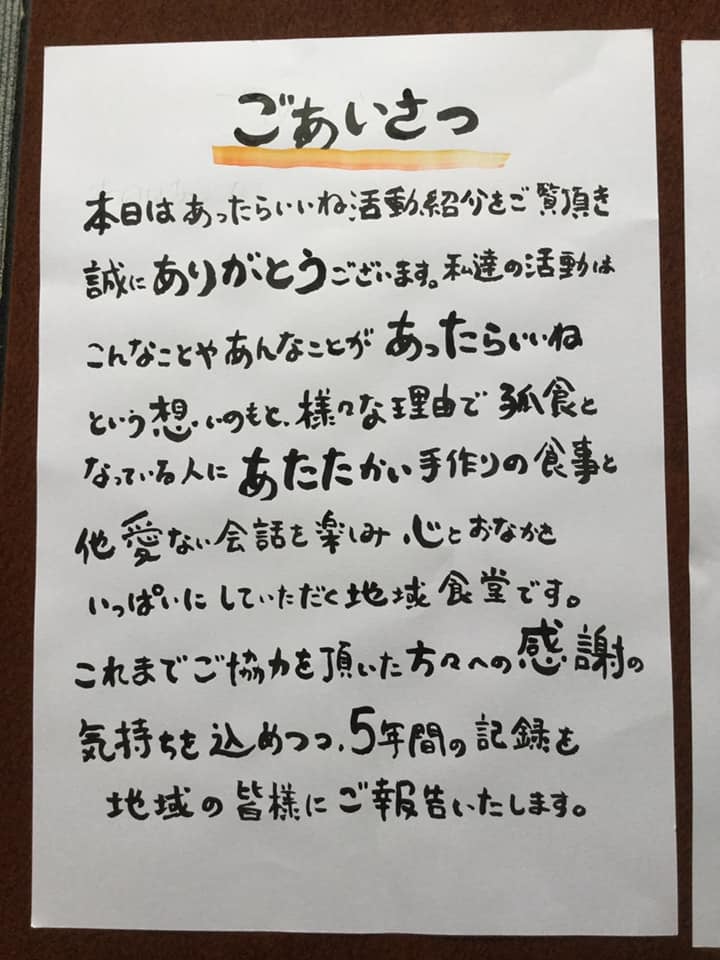 ごあいさつ
本日はあったらいいね活動紹介をご覧頂き
誠にありがとうございます。私達の活動は
こんなことやあんなことがあったらいいね
という想いのもと、様々な理由で孤食と
なっている人にあたたかい手作りの食事と
他愛ない会話を楽しみ心とおなかを
いっぱいにしていただく地域食堂です。
これまでご協力を頂いた方々への感謝の
気持ちを込めつつ、5年間の記録を
地域の皆様にご報告いたします。